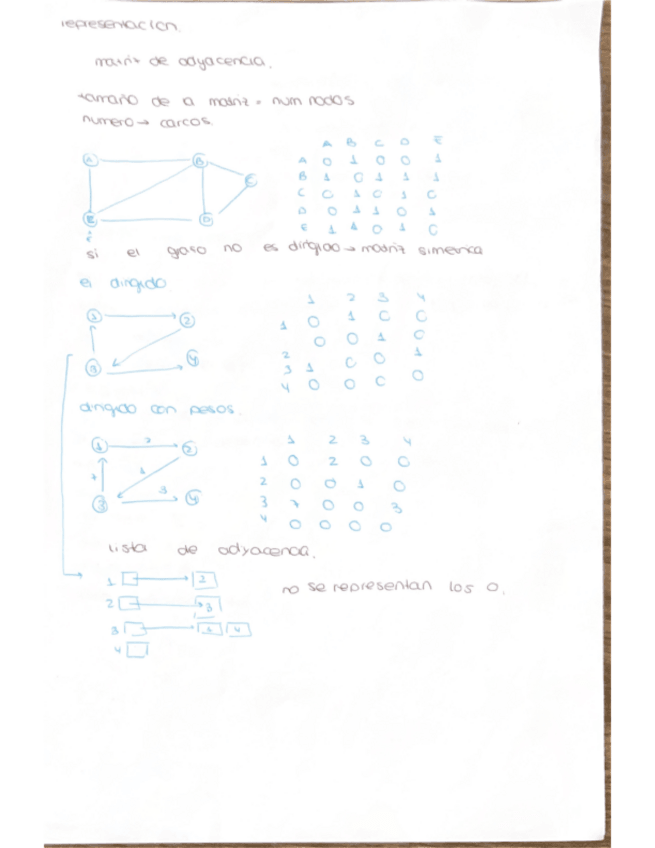 representacion.
matriz de adyacencia.
tamaño de a matriz = num nodos
numero → carcos.
A B C D E
A 0 1 0 0 1
B 1 0 1 1 1
C 0 1 0 1 0
D 0 1 1 0 1
E 1 1 0 1 0
A B
C
E D
si el grafo no es dirigido → matriz simetrica
el dirigido
1 2 3 4
1 0 1 0 0
2 0 0 1 0
3 1 0 0 1
4 0 0 0 0
1 2
3 4
dirigido con pesos.
1 2 3 4
1 0 2 0 0
2 0 0 1 0
3 7 0 0 3
4 0 0 0 0
1 2 2
7 1 3
3 4
lista de adyacencia.
1 2
no se representan los 0.
2 3
3 1 4
4